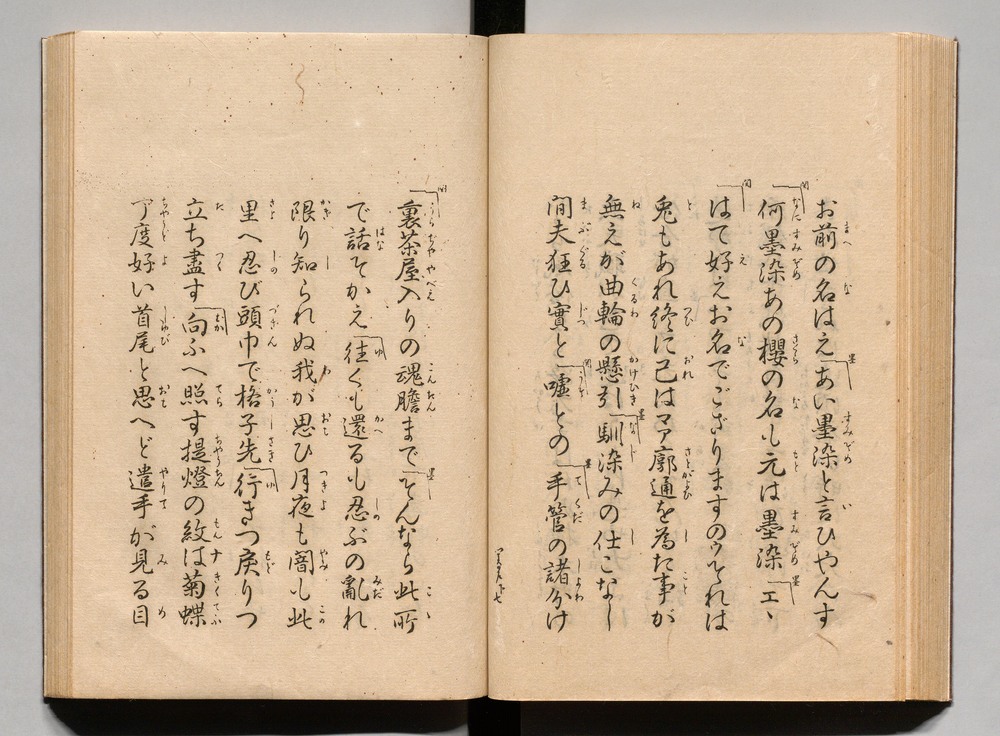 お前の名はえ「あい墨染と言ひやんす
「何墨染あの櫻の名も元は墨染「エヽ
「はて好えお名でござりますのウそれは
兎もあれ終に己はマア廓通を為た事が
無えが曲輪の懸引「馴染みの仕こなし
間夫狂ひ實と「嘘との「手管の諸分け
「裏茶屋入りの魂膽まで「そんなら此所
で話そかえ「往くも還るも忍ぶの亂れ
限り知られぬ我が思ひ月夜も闇も此
里へ忍び頭巾で格子先「行きつ戻りつ
立ち盡す「向ふへ照す提燈の紋はナ菊蝶
丁度好い首尾と思へど遣手が見る目